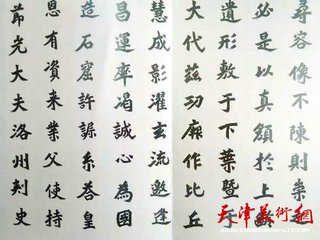 尋容像不陳則崇之
必是以真顏於上齡
遺形敷于下葉暨于
大代茲功厥作比丘
慧成影濯玄流邀逢
昌運率渴誠心為國
造石窟許系荅皇
恩有資来業父使持
節光大夫洛州刺史
天津美術網